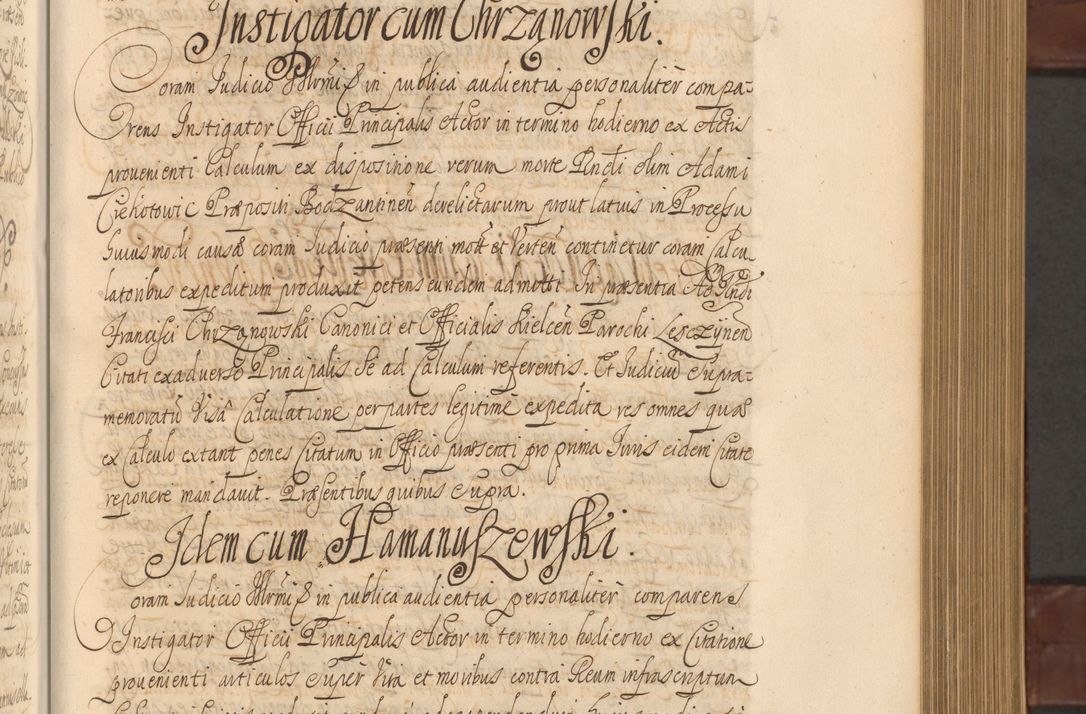 Instigator cum Chrzanowski.
Coram Judicio in publica audientia personaliter compa-
rens Instigator Officii Principalis Actor in termino hodierno ex Actis
provenienti Calculum ex dispositione rerum morte Rndi olim Adami
Præpositi Bodzantinen derelictarum prout latius in Processu
huiusmodi causæ coram Judicio præsenti mot et Verten continetur coram Calcu
latoribus expeditum produxit petens eundem admitti In præsentia Ad Rndi
Francisci Chrzanowski Canonici et Officialis Kielcen Parochi Lesczynen
Citati ex adverso Principalis Se ad Calculum referentis. Et Judiciu Supra-
memoratu Visa Calculatione per partes legitime expedita res omnes quæ
ex Calculo extant penes Citatum in Officio præsenti pro prima Juris eidem Citato
reponere mandavit. Præsentibus quibus Supra.
Idem cum Hamanuszewski.
Coram Judicio in publica audientia personaliter comparens
Instigator Officii Principalis Actor in termino hodierno ex Citatione
provenienti articulos Super Vita et moribus contra Reum infrascriptum